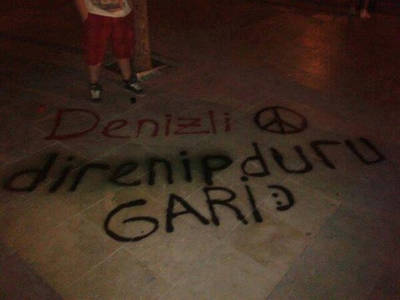 Denizli ☮
direnipduru
GARİ :)